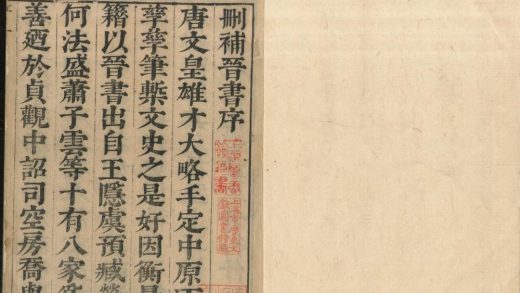 刪補晉書序
唐文皇雄才大略手定中原
孳孳筆槧文史之是好因衡
籍以晉書出自王隱虞預臧
何法盛蕭子雲等十有八家
善廼於貞觀中詔司空房喬